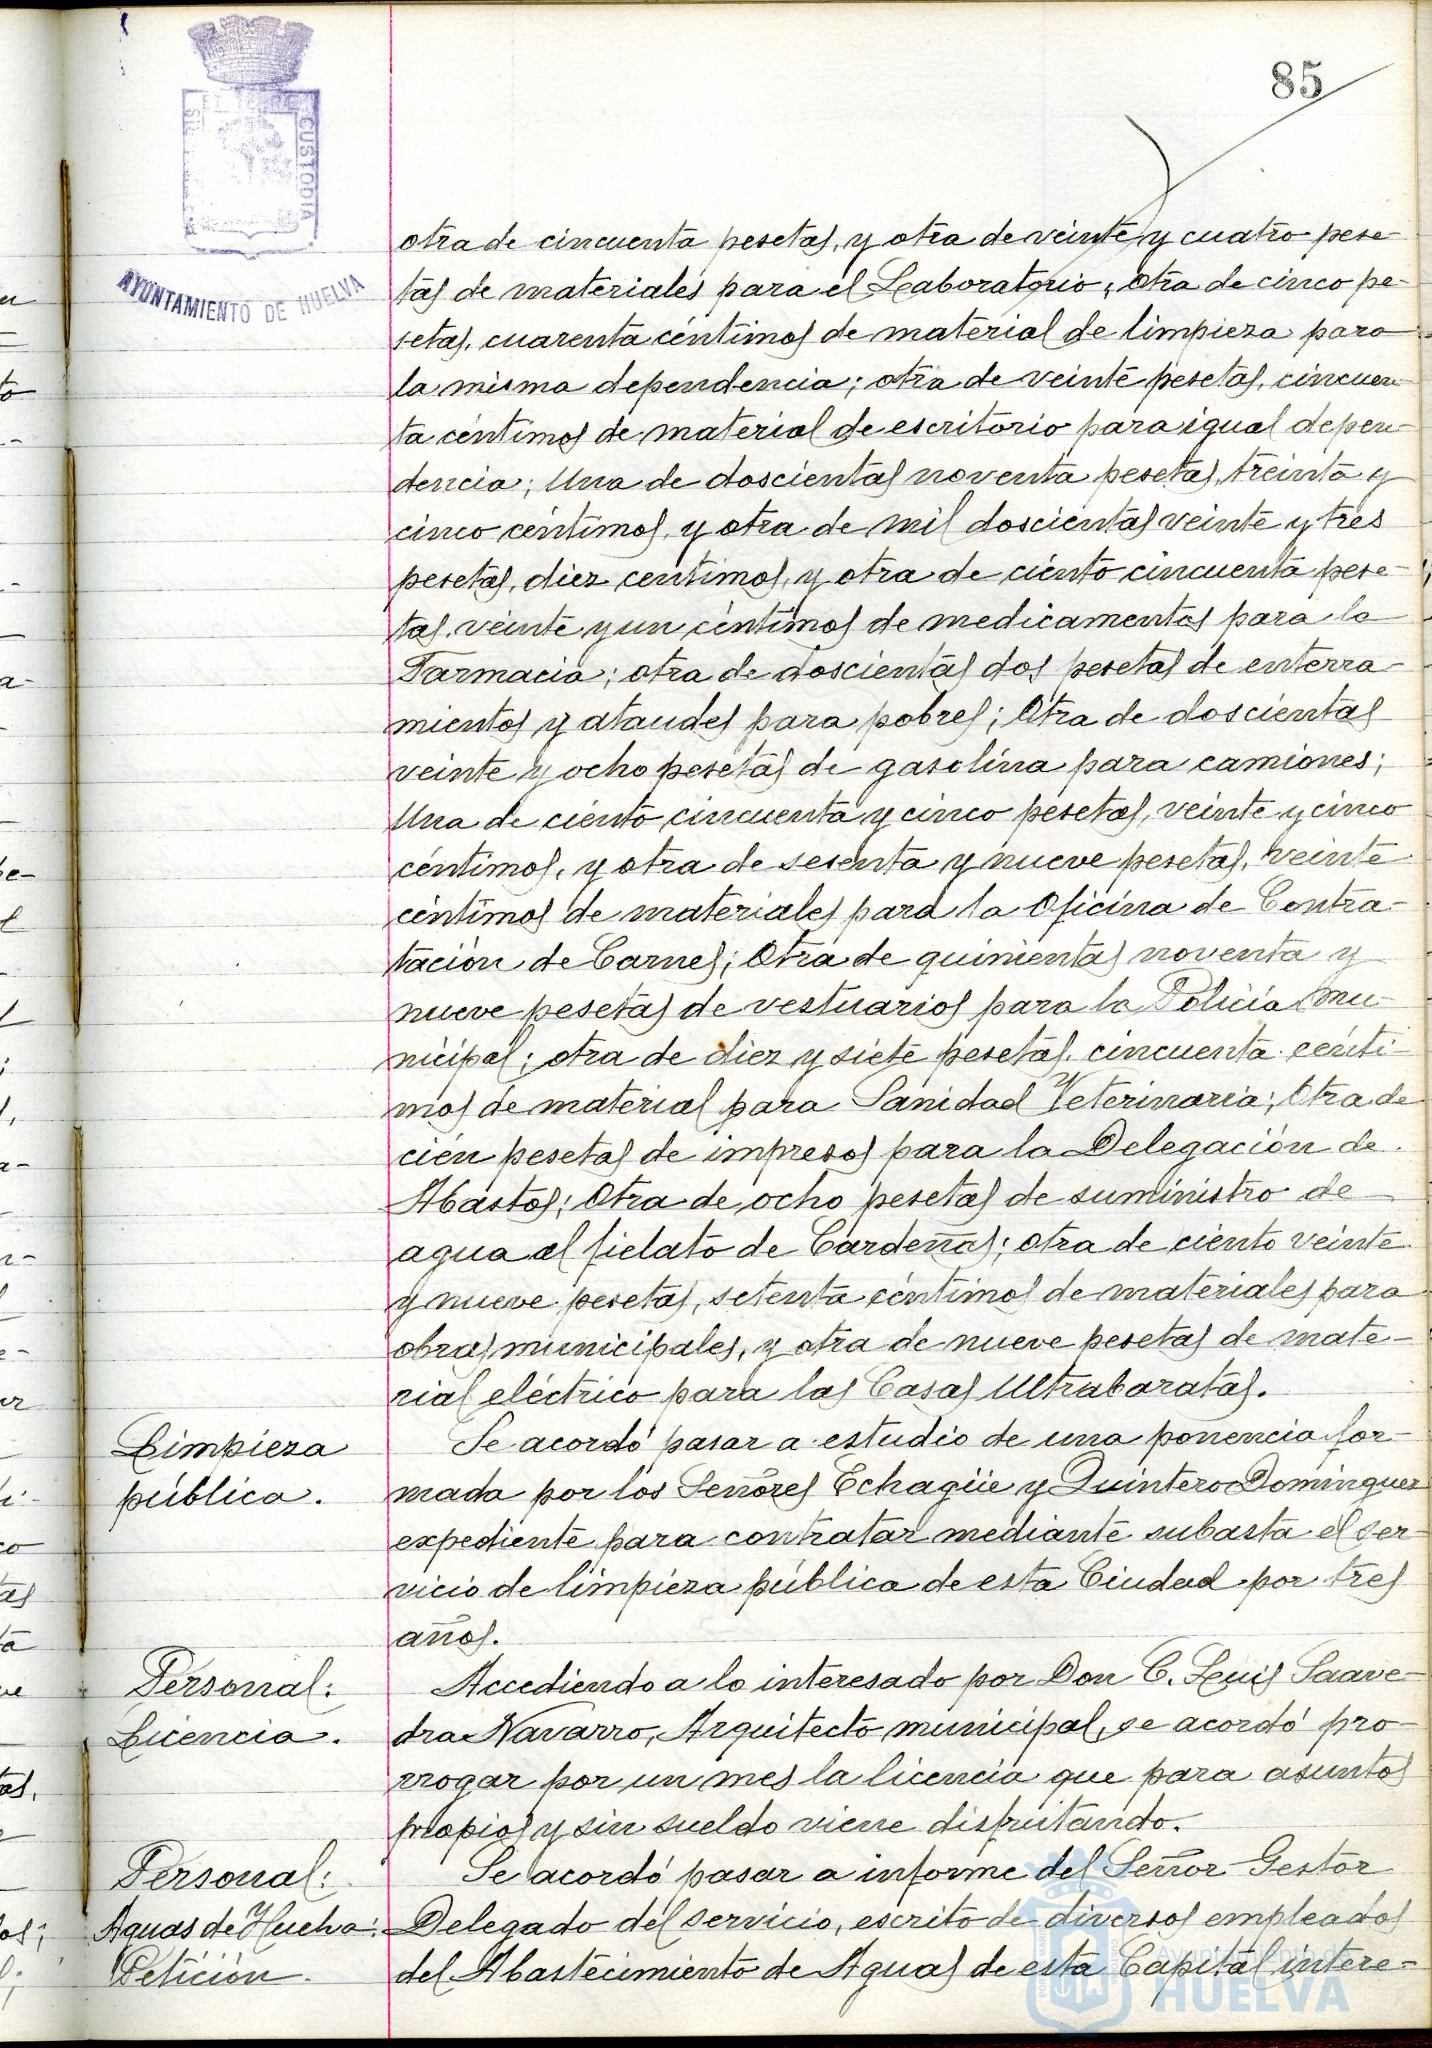 85
ET TERRE CUSTODIA
AYUNTAMIENTO DE HUELVA
otra de cincuenta pesetas, y otra de veinte y cuatro pese-
tas de materiales para el Laboratorio; Otra de cinco pe-
setas, cuarenta céntimos de material de limpieza para
la misma dependencia; otra de veinte pesetas, cincuen-
ta céntimos de material de escritorio para igual depen-
dencia; Una de doscientas noventa pesetas, treinta y
cinco céntimos, y otra de mil doscientas veinte y tres
pesetas, diez centimos, y otra de ciento cincuenta pese-
tas, veinte y un céntimos de medicamentos para la
Farmacia; otra de doscientas dos pesetas de enterra-
mientos y ataudes para pobres; Otra de doscientas
veinte y ocho pesetas de gasolina para camiones;
Una de ciento cincuenta y cinco pesetas, veinte y cinco
céntimos, y otra de sesenta y nueve pesetas, veinte
céntimos de materiales para la Oficina de Contra-
tación de Carnes; Otra de quinientas noventa y
nueve pesetas de vestuarios para la Policía Mu-
nicipal; otra de diez y siete pesetas, cincuenta cénti-
mos de material para Sanidad Veterinaria; Otra de
cien pesetas de impresos para la Delegación de
Abastos; Otra de ocho pesetas de suministro de
agua al fielato de Cardeñas; otra de ciento veinte
y nueve pesetas, setenta céntimos de materiales para
obras municipales, y otra de nueve pesetas de mate-
rial eléctrico para las Casas Ultrabaratas.
Limpieza
pública.
Se acordó pasar a estudio de una ponencia for-
mada por los Señores Echagüe y Quintero Dominguez
expediente para contratar mediante subasta el ser-
vicio de limpieza pública de esta Ciudad por tres
años.
Personal:
Licencia.
Accediendo a lo interesado por Don C. Luis Saave-
dra Navarro, Arquitecto municipal, se acordó pro-
rrogar por un mes la licencia que para asuntos
propios y sin sueldo viene disfrutando.
Personal:
Aguas de Huelva.
Petición.
Se acordó pasar a informe del Señor Gestor
Delegado del servicio, escrito de diversos empleados
del Abastecimiento de Aguas de esta Capital intere-
Ayuntamiento de
HUELVA